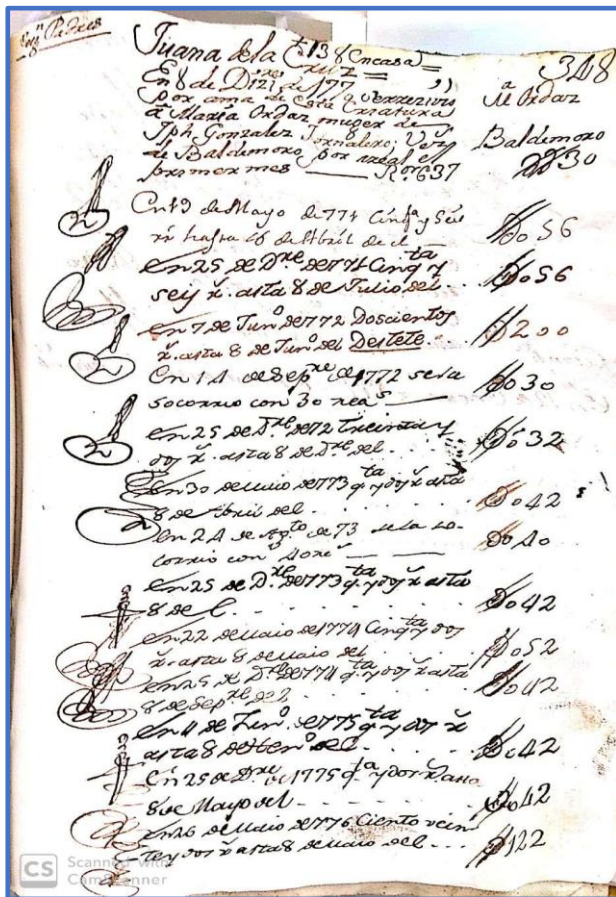 Padres
Juana dela Cruz = 348
En 8 de Diz.re de 177
por ama de esta Criatura
â Maria Ordaz muger de Ordaz
Jph. Gonzalez Jornalero; Vez.
de Baldemoro, por Baldemoro
primer mes 637 30
En 19 de Mayo de 771 Cinq.ta y Seis
r.s hasta de Abril de el 056
En 25 de D.re de 771 Cinq.ta y
seis r. asta 8 de Julio del .. 056
en 7 de Jun.o de 772 Doscientos
r. asta 8 de Jun.o del Destete. 200
En 14 de Sep.re de 1772 se la
socorrio con 30 rea.s 030
en 25 de D.re de 72 treinta y
dos r. asta 8 de D.re del . . 032
en 30 de Maio de 773 q.ta y dos r. asta
8 de Abril del 042
en 24 de Ag.to de 73 se la so-
corrio con 40 r.s 040
en 25 de D.re de 773 q.ta y dos r. asta
8 de 042
en 22 de Maio de 1774 Cinq.ta y dos
r. asta 8 de Maio del 052
en 25 de D.re de 774 q.ta y dos r. asta
8 de Sep.re del 042
en 4 de Jun.o de 1775 q.ta y dos r.
asta 8 de Hen.o del 042
en 25 de D.re de 1775 q.ta y dos r. asta
8 de Mayo del 042
en 26 de Maio de 776 Ciento vein
te y dos r. asta 8 de Maio del ... 122
CS Scanned with
CamScanner